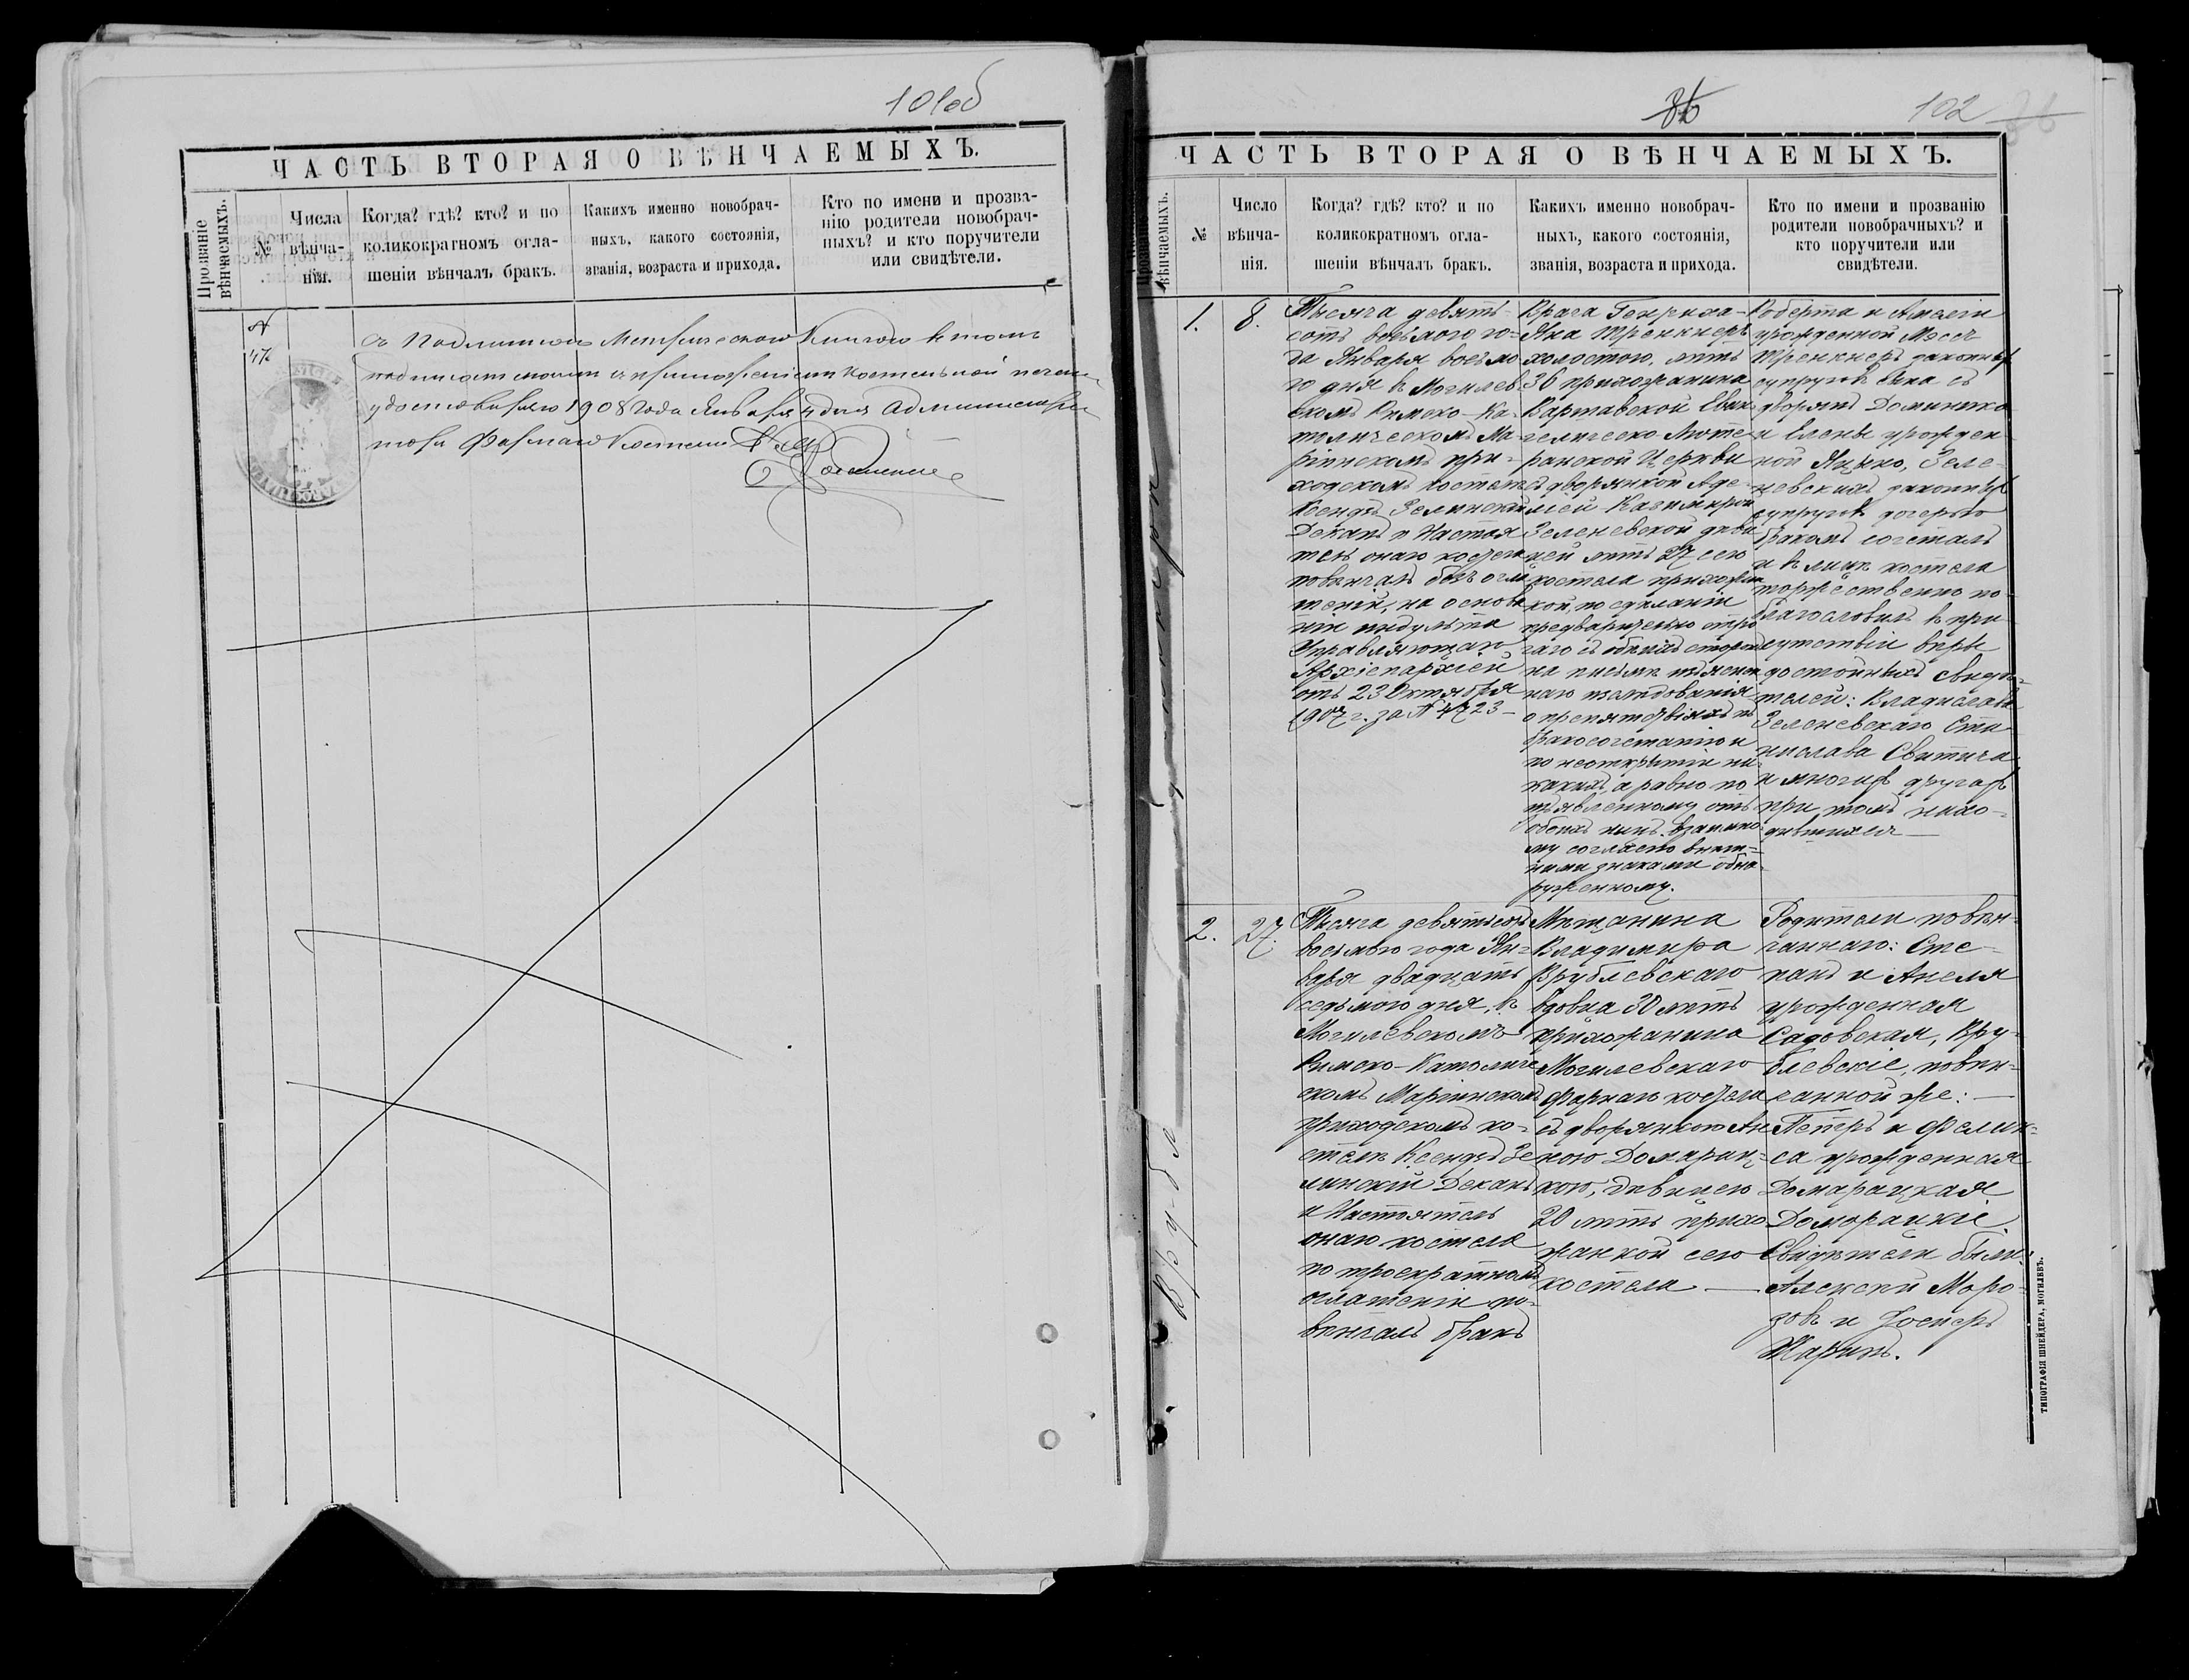 101об
ЧАСТЬ ВТОРАЯ О ВѢНЧАЕМЫХЪ.
Прозваніе вѣнчаемыхъ.
№
Числа вѣнча-
нія.
Когда? гдѣ? кто? и по
коликократномъ огла-
шеніи вѣнчалъ бракъ.
Какихъ именно новобрач-
ныхъ, какого состоянія,
званія, возраста и прихода.
Кто по имени и прозва-
нію родители новобрач-
ныхъ? и кто поручители
или свидѣтели.
съ Подлинною Метрическою Книгою въ томъ
подписомъ моимъ съ приложеніемъ костельной печати
удостовѣряю 1908 года Января 4 дня Администра-
торъ Фарнаго Костела
86
102
ЧАСТЬ ВТОРАЯ О ВѢНЧАЕМЫХЪ.
Прозваніе вѣнчаемыхъ.
№
Число
вѣнча-
нія.
Когда? гдѣ? кто? и по
коликократномъ огла-
шеніи вѣнчалъ бракъ.
Какихъ именно новобрач-
ныхъ, какого состоянія,
званія, возраста и прихода.
Кто по имени и прозванію
родители новобрачныхъ? и
кто поручители или
свидѣтели.
1.
8.
Тысяча девять-
сотъ восьмого го-
да Января восьмо
го дня въ Могилев
скомъ Римско-Ка-
толическомъ Ма-
ріинскомъ при-
ходскомъ костелѣ
Ксендзъ Зелинскій
Деканъ и Настоя
тель онаго костела
повѣнчалъ безъ огла
шеній, на основа
ніи индульта
Управляющаго
Архіепархіей
отъ 23 Октября
1907 г. за № 4723 -
Врача Генриха-
Яна Тренкнеръ
холостого, лѣтъ
36 прихожанина
Варшавской Еван
гелическо-Люте
ранской Церкви
съ дворянкой Аде-
лей-Казимирой
Зеленевской дѣви
цей лѣтъ 27 сего
костела прихожан
кой, по сдѣланіи
предварительно стро
гаго съ обѣихъ сторонъ
на письмѣ изъяснен
наго изслѣдованія
о препятствіяхъ къ
бракосочетанію и
по неоткрытіи ни
какихъ, а равно по
изъявленному отъ
обоихъ нихъ взаимно
му согласію внѣш-
ними знаками обна
руженному.
Роберта и Амаліи
урожденной Мосс
Тренкнеръ законныхъ
супруговъ сына съ
дворянъ Доминика
и Елены урожден
ной Яцыно, Зеле-
невскихъ законныхъ
супруговъ дочерью
бракомъ сочеталъ
и въ лицѣ костела
торжественно по-
благословилъ въ при
сутствіи вѣры
достойныхъ свидѣ-
телей: Владислава
Зеленевскаго Ста-
нислава Свитича
и многихъ другихъ
при томъ нахо-
дившихся —
2.
27.
Тысяча девятьсотъ
восьмого года Ян-
варя двадцать
седьмого дня, въ
Могилевскомъ
Римско-Католиче
скомъ Маріинскомъ
приходскомъ ко-
стелѣ Ксендзъ Зе
линскій Деканъ
и Настоятель
онаго костела
по троекратномъ
оглашеніи по-
вѣнчалъ бракъ
Мѣщанина
Владимира
Врублевскаго
вдовца 30 лѣтъ
прихожанина
Могилевскаго
Фарнаго костела
съ дворянкою Ан
ною Домарац-
кою, дѣвицею
20 лѣтъ прихо
жанкой сего
костела —
Родители повѣн-
чаннаго: Сте-
панъ и Анеля
урожденная
Садовская, Вру-
блевскіе, повѣн-
чанной же: —
Петръ и Фелик-
са урожденная
Домарацкая
Домарацкіе.
Свидѣтели были:
Алексѣй Моро-
зовъ и Іосифъ
Жаринъ.
Врубл
ТИПОГРАФІЯ ШНЕЙДЕРА, МОГИЛЕВЪ.